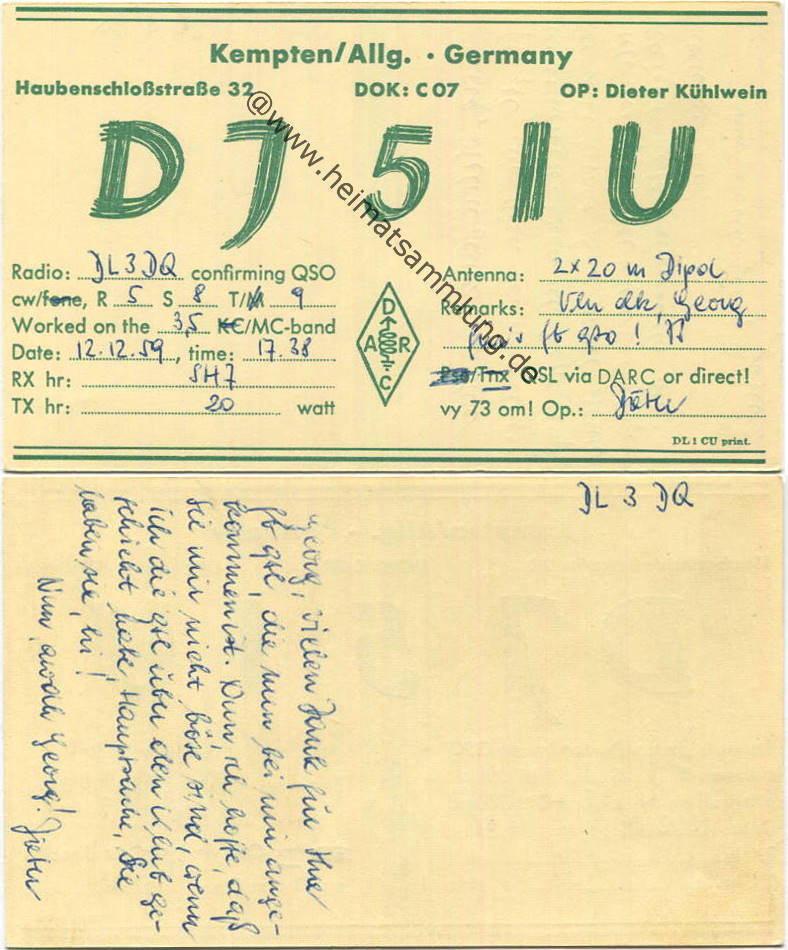 Kempten/Allg. · Germany
Haubenschloßstraße 32 DOK: C 07 OP: Dieter Kühlwein
DJ5IU
@www.heimatsammlung.de
Radio: DL3DQ confirming QSO
cw/fone, R 5 S 8 T/M 9
Worked on the 3,5 KC/MC-band
Date: 12.12.59, time: 17.38
RX hr: SH7
TX hr: 20 watt
D
A R
C
Antenna: 2x20 m Dipol
Remarks: Vln dk, Georg
fb qso !
Pse/Tnx QSL via DARC or direct!
vy 73 om! Op.: Dieter
DL 1 CU print.
DL 3 DQ
Georg, vielen Dank für Ihre
fb qsl, die nun bei mir ange-
kommen ist. Nun, ich hoffe, daß
Sie mir nicht böse sind, wenn
ich die qsl über den Klub ge-
schickt habe, Hauptsache, Sie
haben sie, hi!
Nun, awdh Georg! Dieter